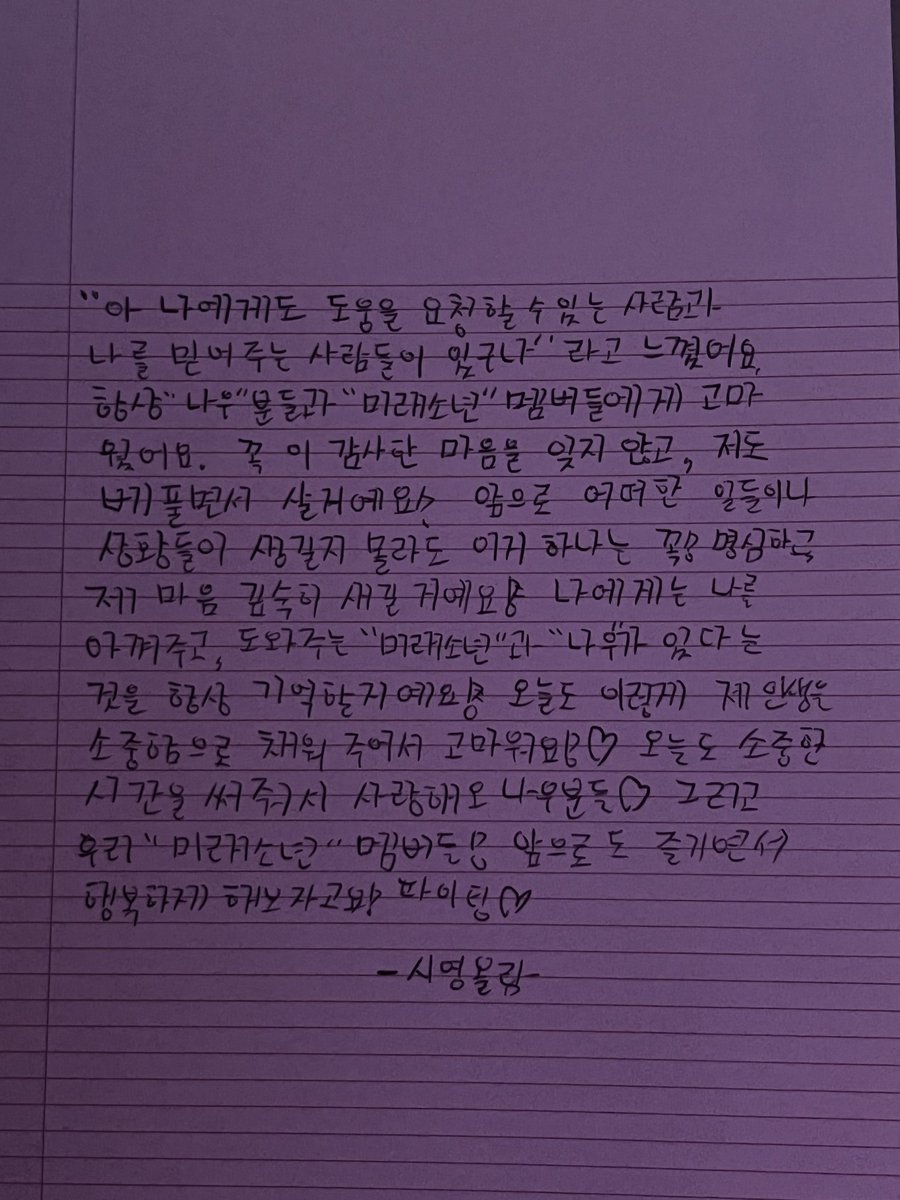 "아 나에게도 도움을 요청할 수 있는 사람과
나를 믿어주는 사람들이 있구나," 라고 느꼈어요.
항상 "나우"분들과 "미래소년" 멤버들에게 고마
웠어요. 꼭 이 감사한 마음을 잊지 않고, 저도
베풀면서 살거에요 앞으로 어떠한 일들이나
상황들이 생길지 몰라도 이거 하나는 꼭 명심하고
저 마음 깊숙히 새길 거예요 나에게는 나를
아껴주고, 도와주는 "미래소년"과 "나우"가 있다는
것을 항상 기억할 예요 오늘도 이렇게 제 인생을
소중함으로 채워 주어서 고마워요♡ 오늘도 소중한
시간을 써주셔서 사랑해요 나우분들♡ 그리고
우리 "미래소년" 멤버들 앞으로도 즐기면서
행복하게 해 파이팅♡
-시영올림-